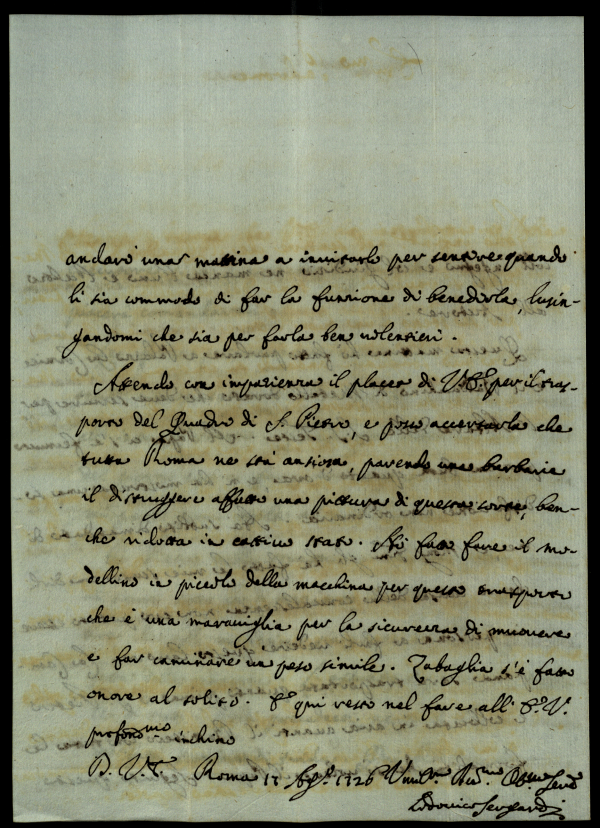 andarò una mattina a invitarlo per sentire quando
li sia commodo di far la funzione di benedirla, lusin-
gandomi che sia per farla ben volentieri.
Attendo con impazienza il placet di V. S. per il tras-
porto del Quadro di S. Pietro, e posso accertarla che
tutta Roma ne stà ansiosa, parendo una barbarie
il distruggere affatto una pittura di questa sorte, ben-
che ridotta in cattivo stato. Hò fatto fare il mo-
dellino in piccolo della macchina per questo trasporto
che è una maraviglia per la sicurezza di muovere
e far caminare un peso simile. Zabaglia s'è fatto
onore al solito. E qui resto nel fare all'
profondmo inchino
D. V. S. Roma 1726 Umilmo
Lodovico Sergardi